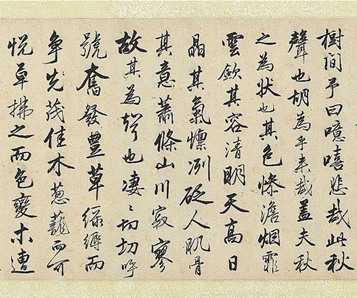 樹間予曰噫嘻悲哉此秋
聲也胡為乎來哉蓋夫秋
之為狀也其色慘澹烟霏
雲斂其容清明天高日
晶其氣慄冽砭人肌骨
其意蕭條山川寂寥
故其為聲也凄〻切切呼
號奮發豐草綠縟而
争先茂佳木葱蘢而可
悅草拂之而色變木遭